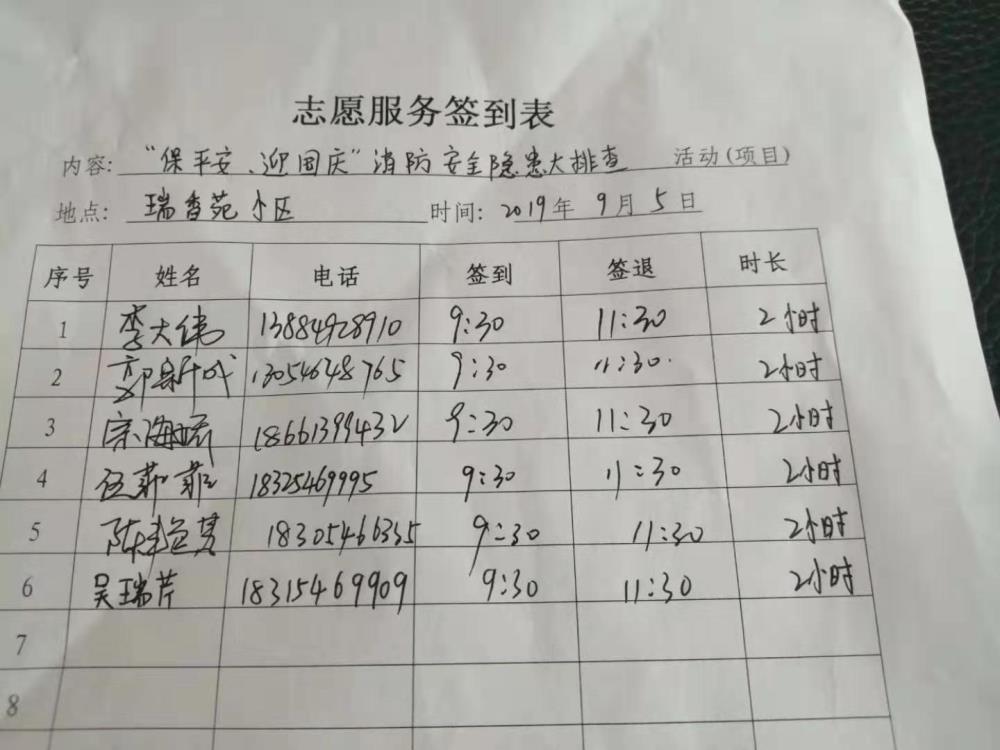 志愿服务签到表
内容: “保平安、迎国庆”消防安全隐患大排查 活动(项目)
地点: 瑞香苑小区 时间: 2019年9月5日
序号 姓名 电话 签到 签退 时长
1 李大伟 13884928910 9:30 11:30 2小时
2 13054648765 9:30 11:30 2小时
3 宗海 18661399432 9:30 11:30 2小时
4 伍菲菲 18325469995 9:30 11:30 2小时
5 陈 18305466355 9:30 11:30 2小时
6 吴瑞芹 18315469909 9:30 11:30 2小时
7
8